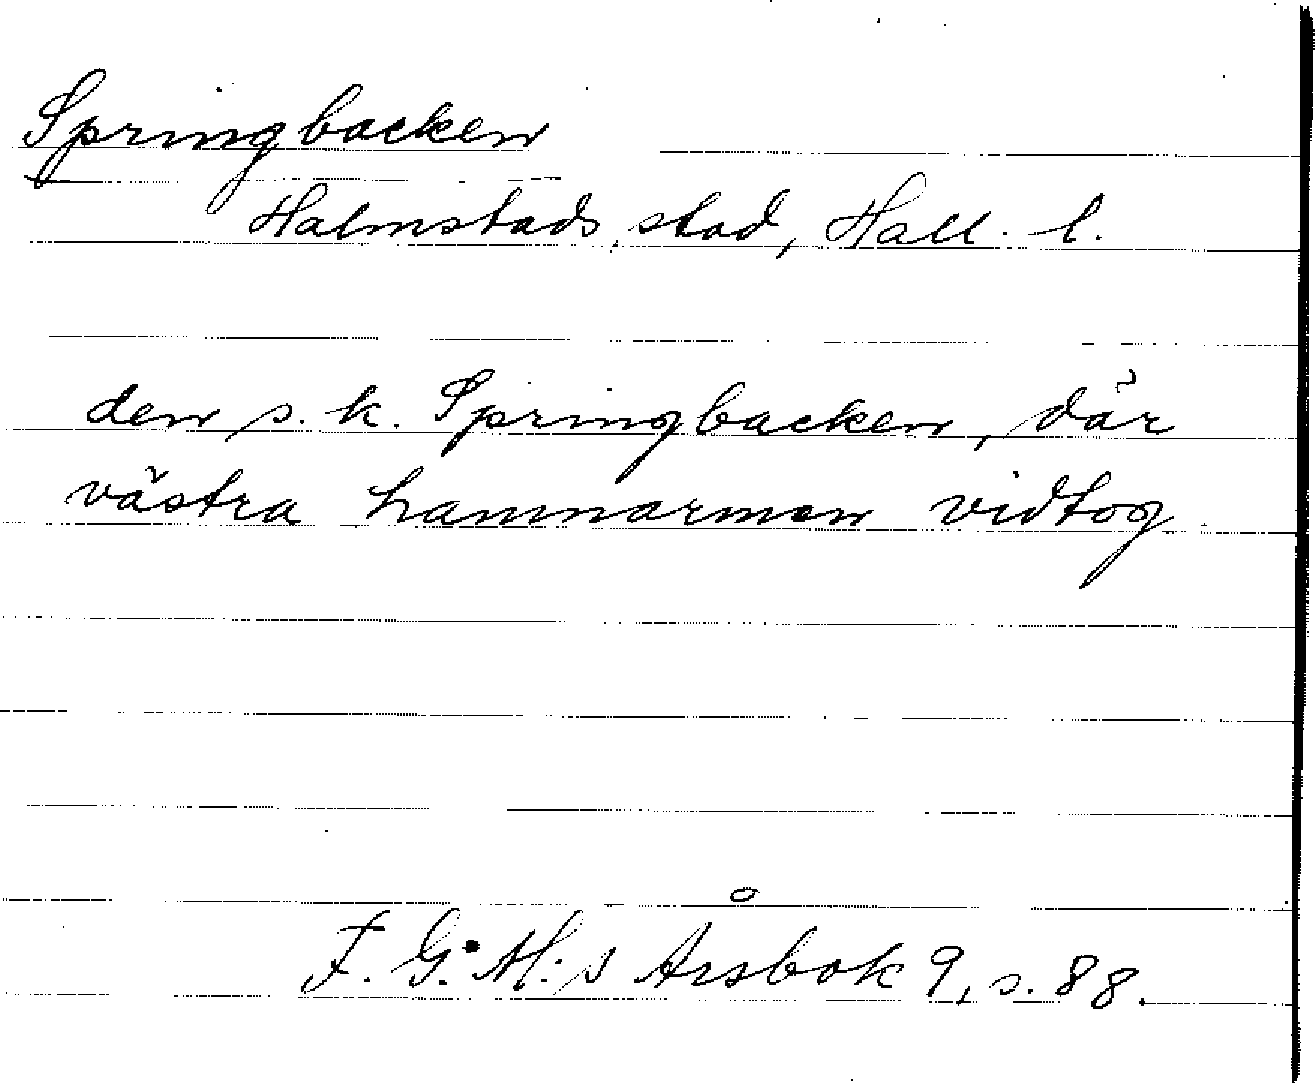 Springbacken
Halmstads stad, Hall. l.
den s. k. Springbacken, där
västra hamnarmen vidtog
F. G. H:s Årsbok 9, s. 88.